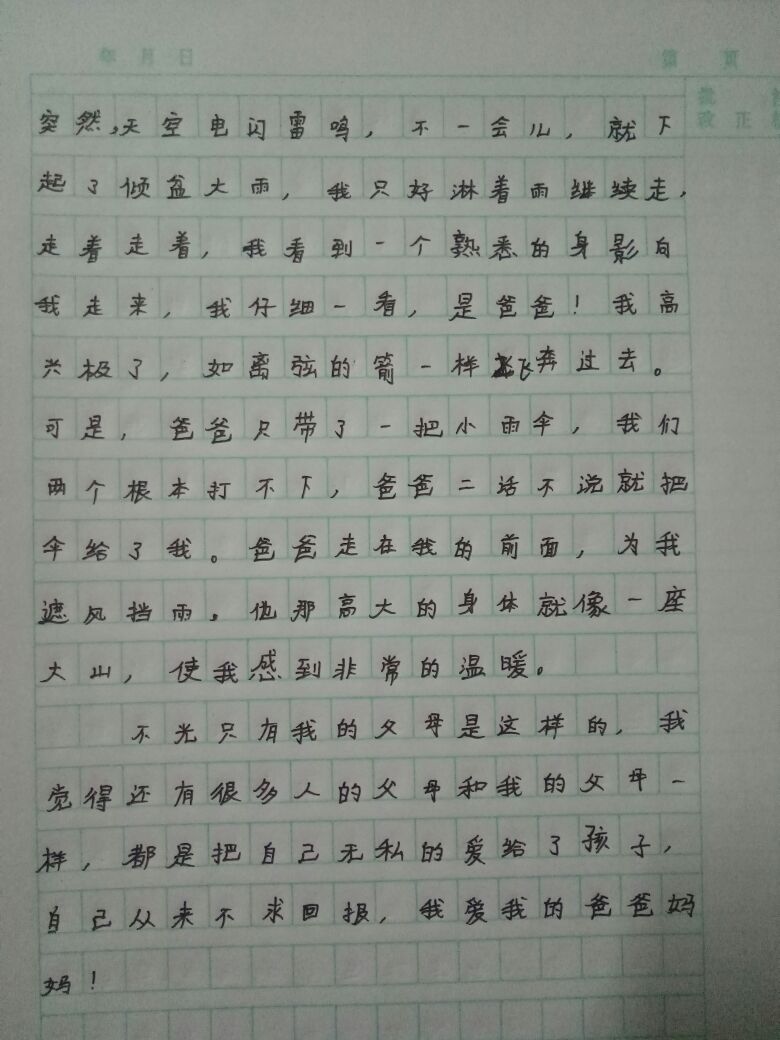 年 月 日 第 页
批
改 正
突然,天空电闪雷鸣，不一会儿，就下
起了倾盆大雨，我只好淋着雨继续走，
走着走着，我看到一个熟悉的身影向
我走来，我仔细一看，是爸爸！我高
兴极了，如离弦的箭一样飞奔过去。
可是，爸爸只带了一把小雨伞，我们
两个根本打不下，爸爸二话不说就把
伞给了我。爸爸走在我的前面，为我
遮风挡雨。他那高大的身体就像一座
大山，使我感到非常的温暖。
不光只有我的父母是这样的，我
觉得还有很多人的父母和我的父母一
样，都是把自己无私的爱给了孩子，
自己从来不求回报，我爱我的爸爸妈
妈！